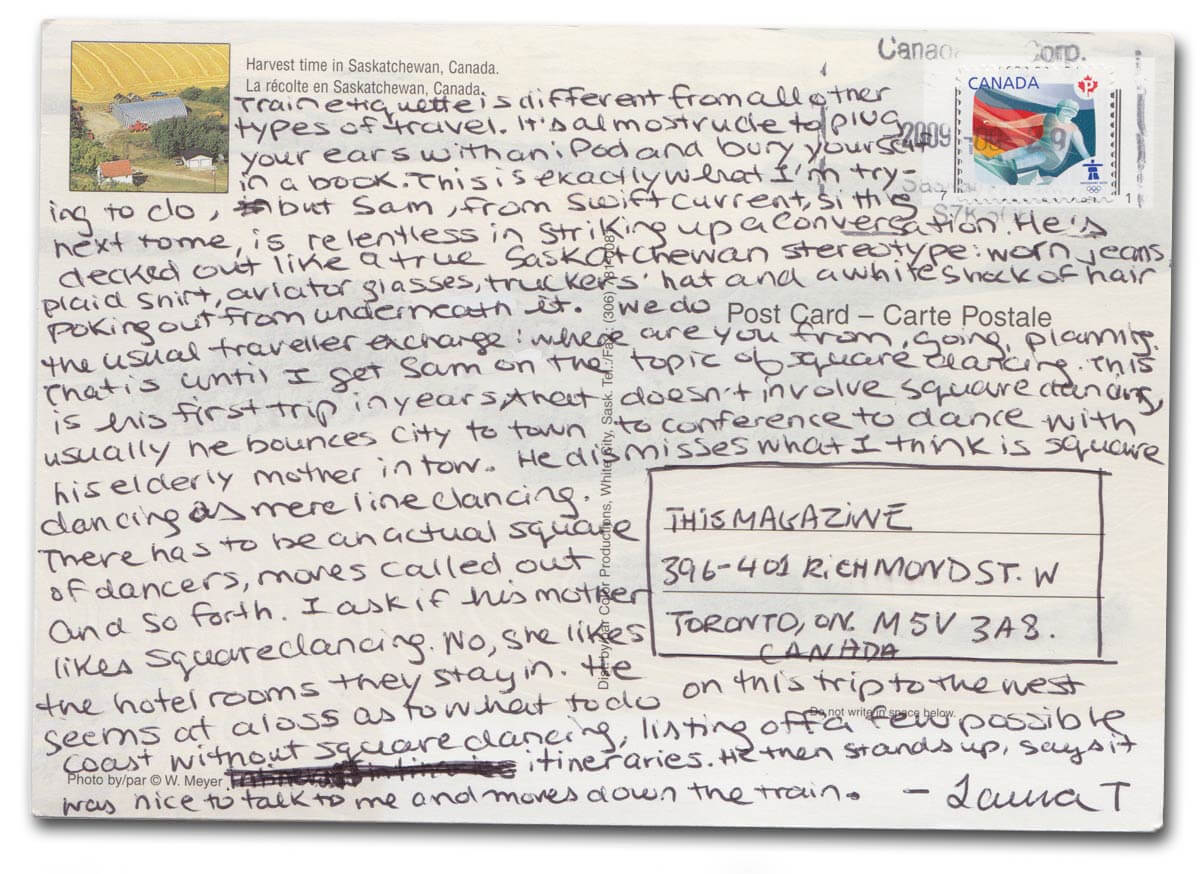 Harvest time in Saskatchewan, Canada.
La récolte en Saskatchewan, Canada.
Canad Corp.
CANADA
P
2009
7 1
Train etiquette is different from all other
types of travel. It's almost rude to plug
your ears with an iPod and bury yourself
in a book. This is exactly what I'm try-
ing to do, but Sam, from Swift current, sitting
next to me, is relentless in striking up a conversation. He is
decked out like a true Saskatchewan stereotype: worn jeans,
plaid shirt, aviator glasses, truckers' hat and a white shock of hair
poking out from underneath it. We do
Post Card – Carte Postale
the usual traveller exchange: where are you from, going, planning.
That is until I get Sam on the topic of square dancing. This
is his first trip in years that doesn't involve square dancing,
usually he bounces city to town to conference to dance with
his elderly mother in tow. He dismisses what I think is square
dancing as mere line dancing.
There has to be an actual square
of dancers, moves called out
and so forth. I ask if his mother
likes square dancing. No, she likes
the hotel rooms they stay in. He
seems at a loss as to what to do on this trip to the west
coast without square dancing, listing off a few possible
itineraries. He then stands up, says it
was nice to talk to me and moves down the train. – Laura T
THIS MAGAZINE
396-401 RICHMOND ST. W
TORONTO, ON. M5V 3A8.
CANADA
Do not write in space below.
Photo by/par © W. Meyer
Dist. by/par Color Productions, White City, Sask. Tel.:/Fax: (306) 781-